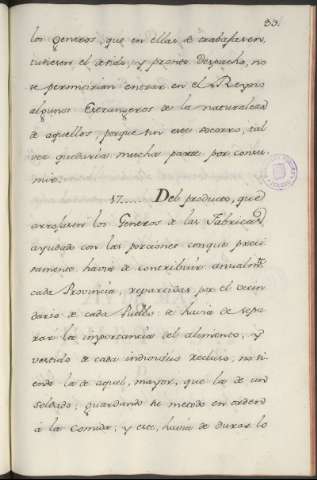 33.
los Generos, que en ellas se trabajasen,
tuviesen el devido, y pronto despacho, no
se permitirian entrar en el Reyno
algunos Estrangeros de la naturaleza
de aquellos, porque sin este socorro, tal
vez quedaria mucha parte por consu-
mir.
17..... Del producto, que
arrojasen los Generos de las Fabricas,
ayudado con las porciones conque preci-
samente havia de contribuir anualmte
cada Provincia, repartidas por el vecin-
dario de cada Pueblo: se havia de sepa-
rar la importancia del alimento, y
vestido de cada individuo recluso, no si-
endo la de aquel, mayor, que la de un
soldado; guardando ese metodo en orden
à la Comida; y este, havia de durar lo